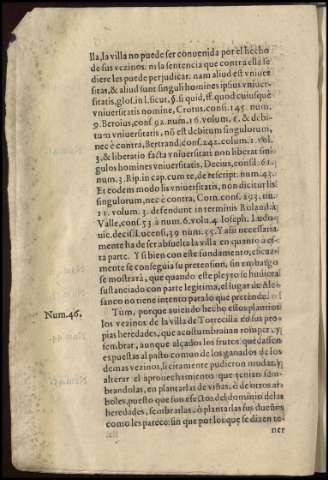 lla, la villa no puede ser convenida por el hecho
de sus vezinos. ni la sentencia que contra ella se
diere les puede perjudicar. nam aliud est vniuer
sitas, & aliud sunt singuli homines ipsius vniuer-
sitatis, glos. in l. sicut, §. si quid, ff. quod cuiusque
vniuersitatis nomine, Crotus, cons. 145. num.
9. Beroius, cons. 92. num. 16. volum. 1. & debi-
tum vniuersitatis, nõ est debitum singulorum,
nec è contra, Bertrand, cons. 242. colum. 2. vol.
3. & liberatio facta vniuersitati non liberat sin-
gulos homines vniuersitatis, Decius, consil. 61.
num. 3. Rip. in cap. cum te, de rescript. num. 43.
Et eodem modo lis vniuersitatis, non dicitur lis
singulorum, nec è contra, Corn. cons. 293. nu.
11. volum. 3. defendunt in terminis Ruland. à
Valle, cons. 53. à num. 6. vol. 4. Ioseph. Ludo-
uic. decis. Lucens. 39. num. 35. Y assi necessaria
mente ha de ser absuelta la villa en quanto a es-
ta parte. Y si bien con este fundamento, eficaz-
mente se conseguia su pretension, sin embargo
se mostrarà, que quando este pleyto se huuiera
sustanciado con parte legitima, el lugar de Ale-
sanco no tiene intento para lo que pretende.
Num. 46. Tùm, porque auiendo hecho estos plantíos
los vezinos de la villa de Torrecilla en sus pro-
pias heredades, que acostumbraian romper, y
sembrar, aunque alçados los frutos quedassen
expuestas al pasto comun de los ganados de los
demas vezinos, licitamente pudieron mudar, y
alterar el aprouechamiento que tenian sem-
brandolas, en plantarlas de viñas, ò de otros ar-
boles, puesto que son efectos del dominio de las
heredades, sembrarlas, ò plantarlas sus dueños
como les parece: sin que por los que se dizen te-
ner